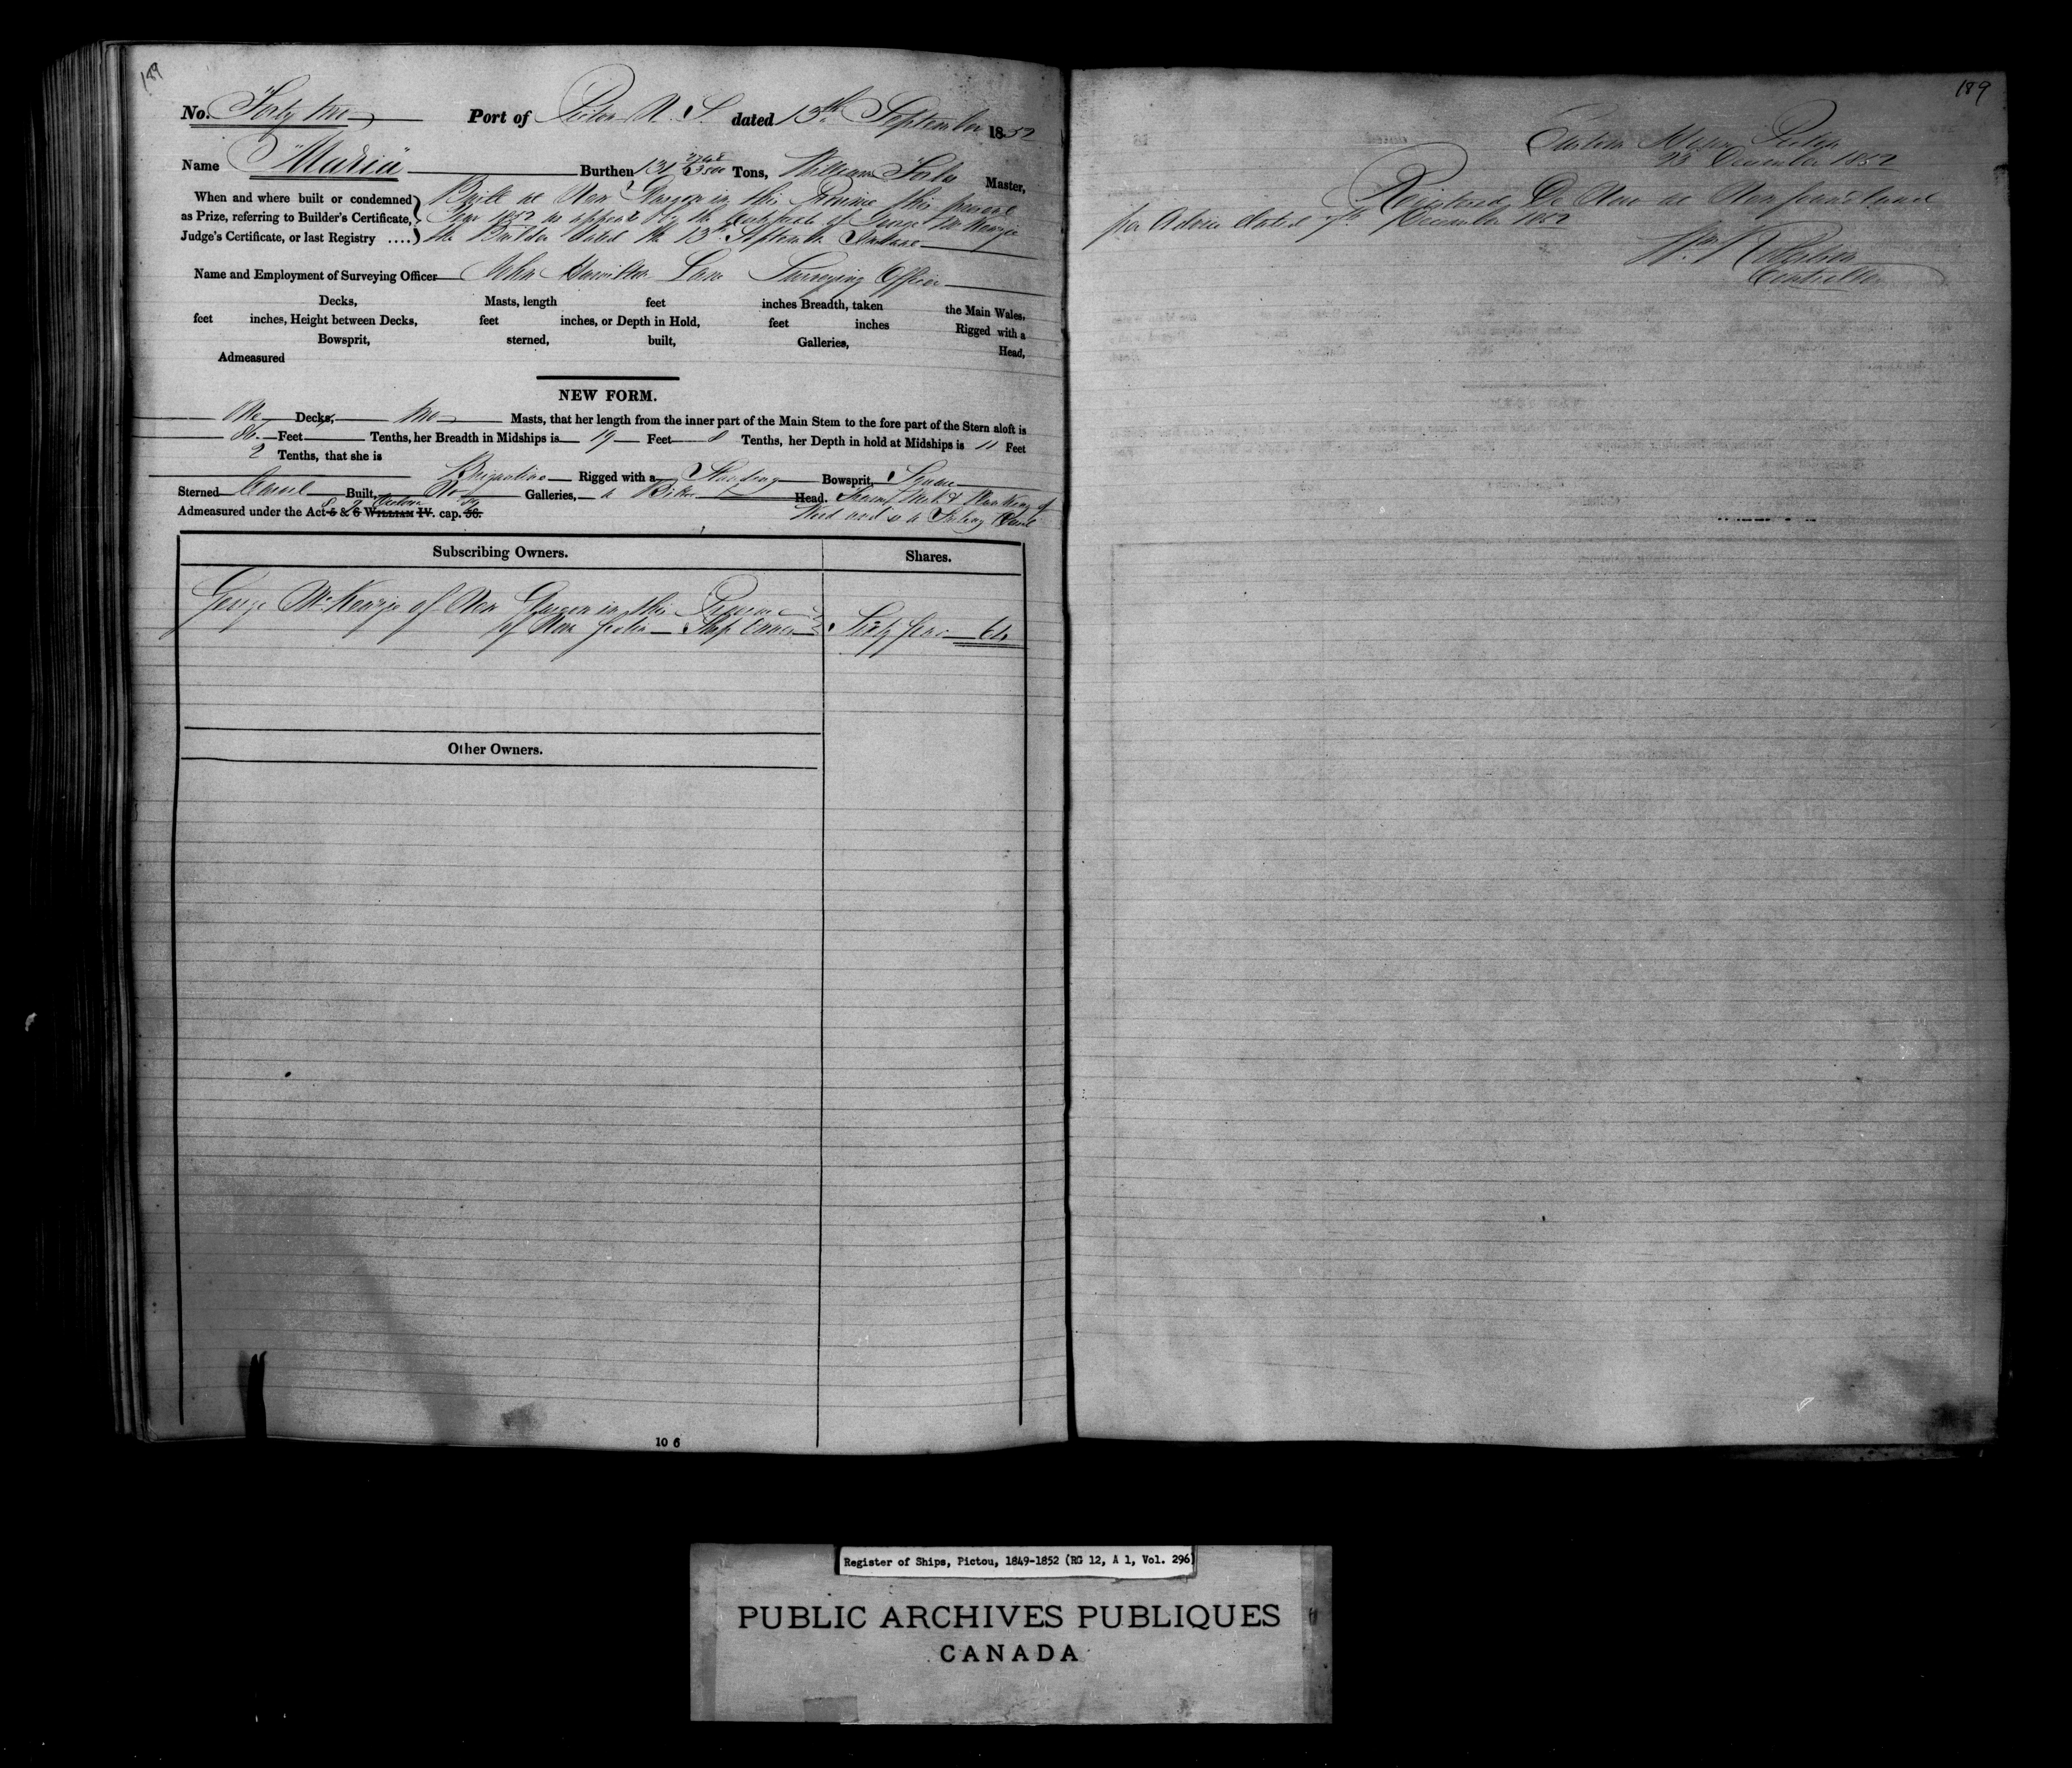 189
No. Forty two Port of Pictou N. S. dated 13th September 1852
Name "Maria" Burthen 131 3500 Tons, William Master,
When and where built or condemned
as Prize, referring to Builder's Certificate,
Judge's Certificate, or last Registry ....
Built at New Glasgow in this Province this present
Year 1852 as appears by the Certificate of George McKenzie
the Builder dated the 13th September Instant
Name and Employment of Surveying Officer John Hamilton Lane Surveying Officer
Decks, Masts, length feet inches Breadth, taken the Main Wales,
feet inches, Height between Decks, feet inches, or Depth in Hold, feet inches Rigged with a
Bowsprit, sterned, built, Galleries, Head,
Admeasured
NEW FORM.
One Decks, two Masts, that her length from the inner part of the Main Stem to the fore part of the Stern aloft is
86 Feet Tenths, her Breadth in Midships is 19 Feet 8 Tenths, her Depth in hold at Midships is 11 Feet
2 Tenths, that she is
Brigantine Rigged with a Standing Bowsprit, Square
Sterned Carvel Built, No Galleries, a Billet Head. Frame Work & Planking of
Wood and is a Sailing Vessel
Admeasured under the Act 5 & 6 WILLIAM IV. cap. 56.
8 9 Victoria 89
Subscribing Owners. Shares.
George McKenzie of New Glasgow in the Province
of Nova Scotia Ship Owner Sixty four 64
Other Owners.
10 6
189
Custom House Pictou
23 December 1852
Registered De Novo at Newfoundland
per Advice dated 7th December 1852
Wm Robertson
Controller
Register of Ships, Pictou, 1849-1852 (RG 12, A 1, Vol. 296)
PUBLIC ARCHIVES PUBLIQUES
CANADA